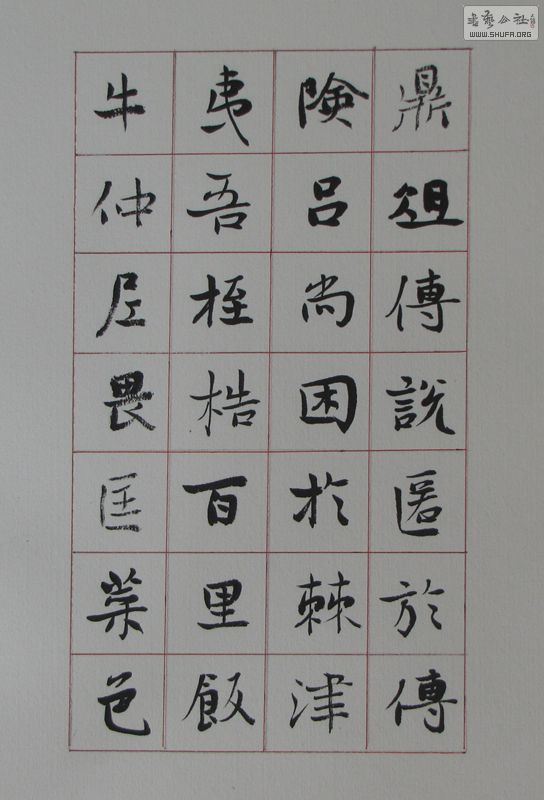 鼎俎傅說匿於傅
險呂尚困於棘津
夷吾桎梏百里飯
牛仲尼畏匡菜色
書藝公社
WWW.SHUFA.ORG